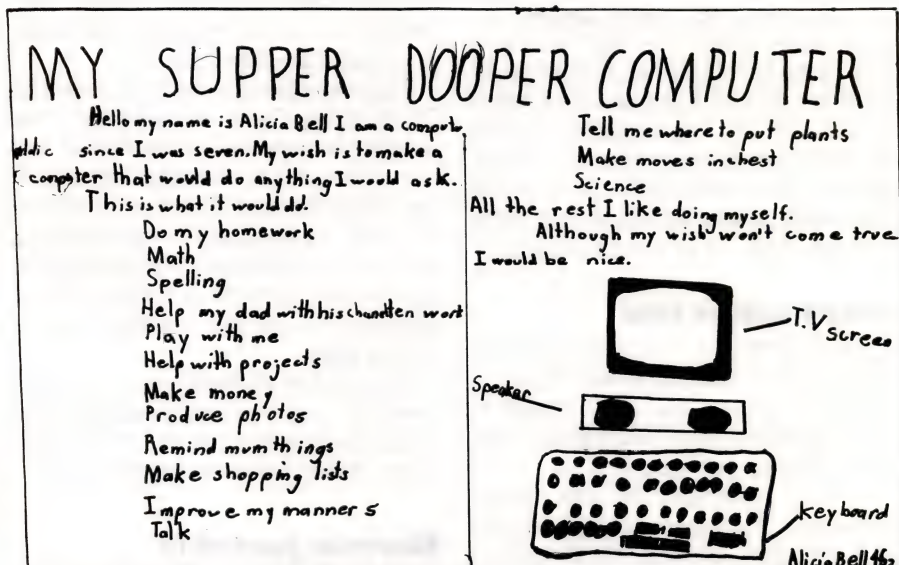 MY SUPPER DOOPER COMPUTER
Hello my name is Alicia Bell I am a compute
addic since I was seven. My wish is to make a
computer that would do anything I would ask.
This is what it would dd.
Do my homework
Math
Spelling
Help my dad with his work
Play with me
Help with projects
Make money
Produce photos
Remind mum things
Make shopping lists
Improve my manners
Talk
Tell me where to put plants
Make moves in chest
Science
All the rest I like doing myself.
Although my wish won't come true
I would be nice.
T.V screen
Speakar
keyboard
Alicia Bell